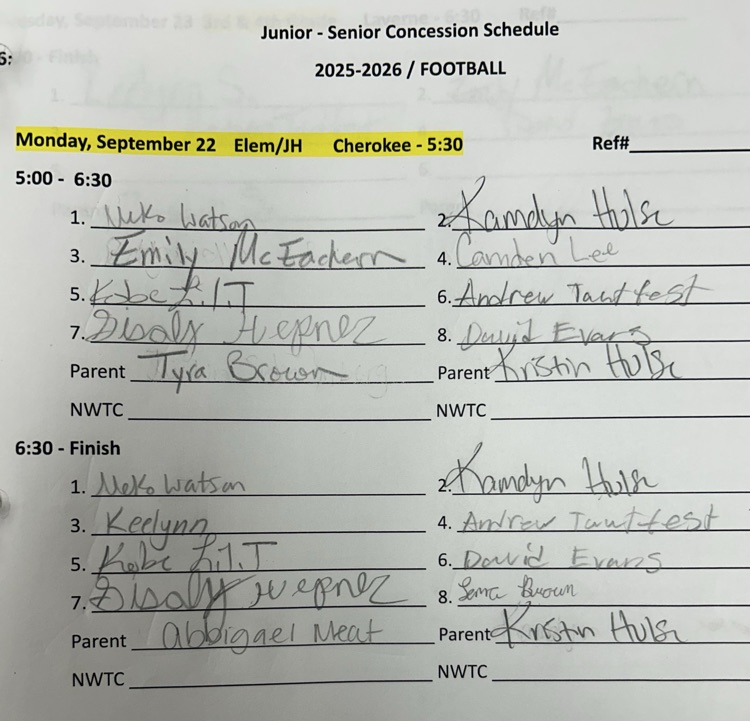 Junior - Senior Concession Schedule
2025-2026 / FOOTBALL
Monday, September 22 Elem/JH Cherokee - 5:30 Ref#
5:00 - 6:30
1. Neko Watson 2. Kamdyn Hulse
3. Emily McEachern 4. Camden Lee
5. Kobe L.I.T 6. Andrew Tautfest
7. 8. David Evans
Parent Tyra Brown Parent Kristin Hulse
NWTC NWTC
6:30 - Finish
1. Neko Watson 2. Kamdyn Hulse
3. Keelynn 4. Andrew Tautfest
5. Kobe L.I.T 6. David Evans
7. 8. Brown
Parent abbigael Meat Parent Kristin Hulse
NWTC NWTC